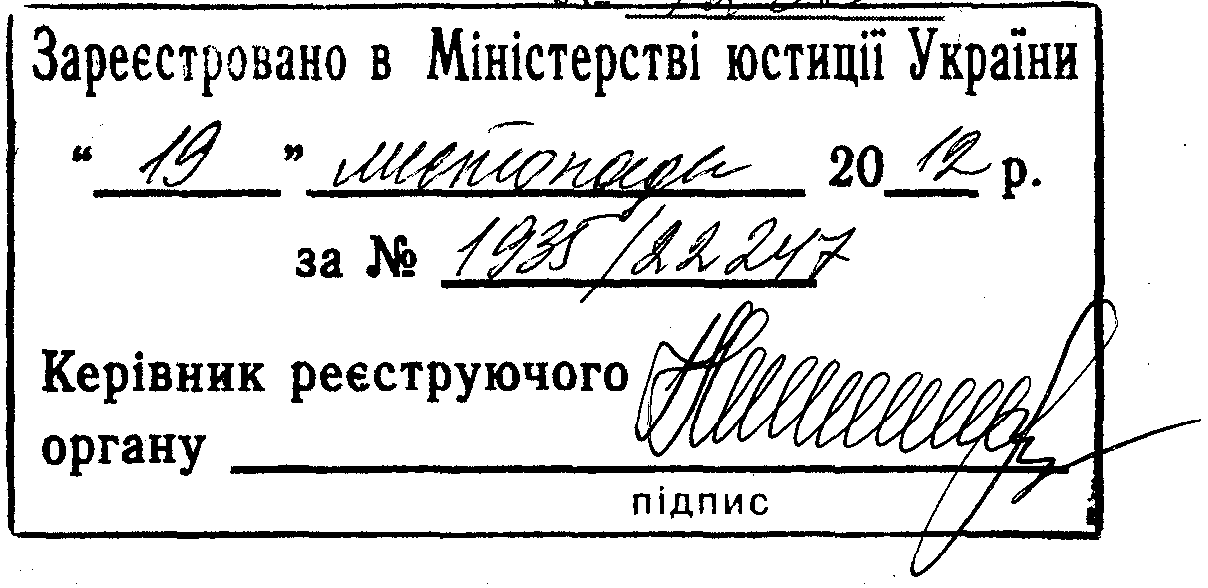 Зареєстровано в Міністерстві юстиції України
“ 19 ” листопада 2012 р.
за № 1935/22247
Керівник реєструючого
органу
підпис